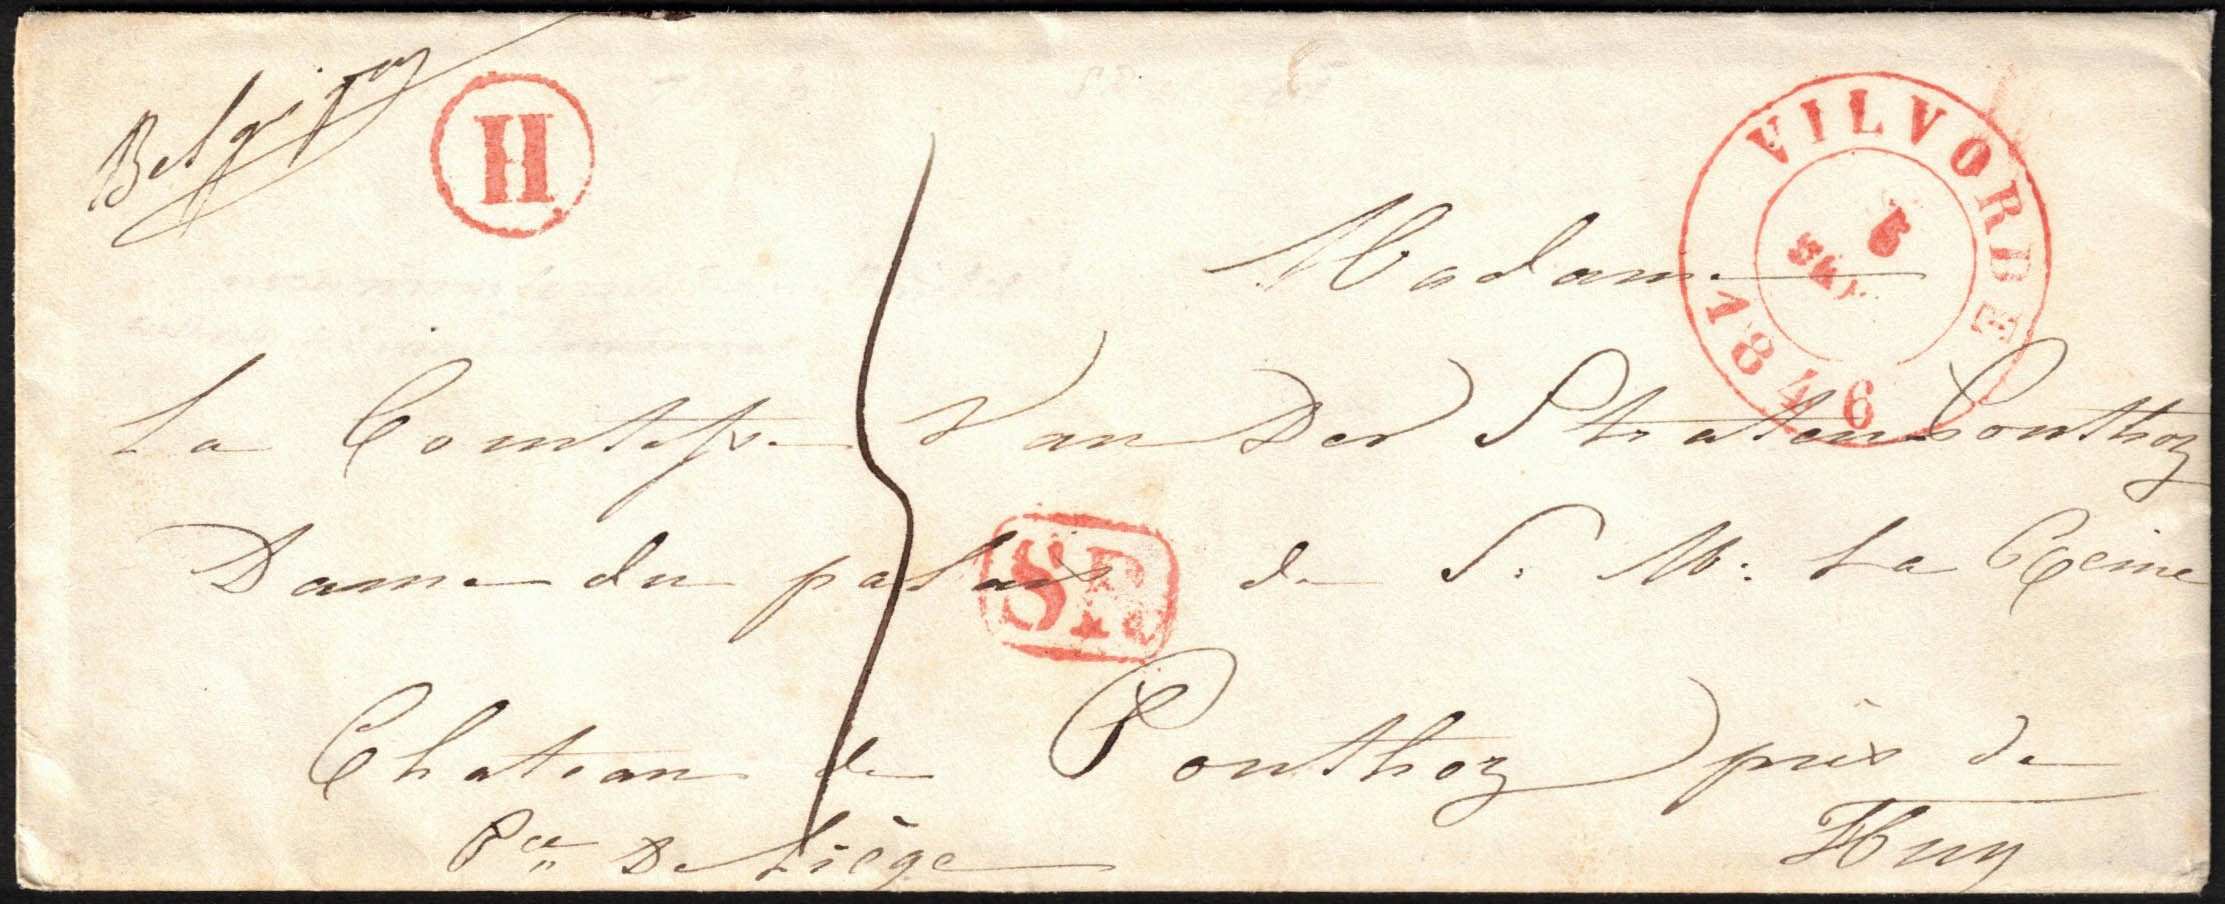 Belgique
H
VILVORDE
5
SEP.
1846
Madame
La Comtesse Van Der Straten Ponthoz
Dame du palais de S. M. La Reine
SR
Chateau de Ponthoz près de
Huy
Pce De Liège